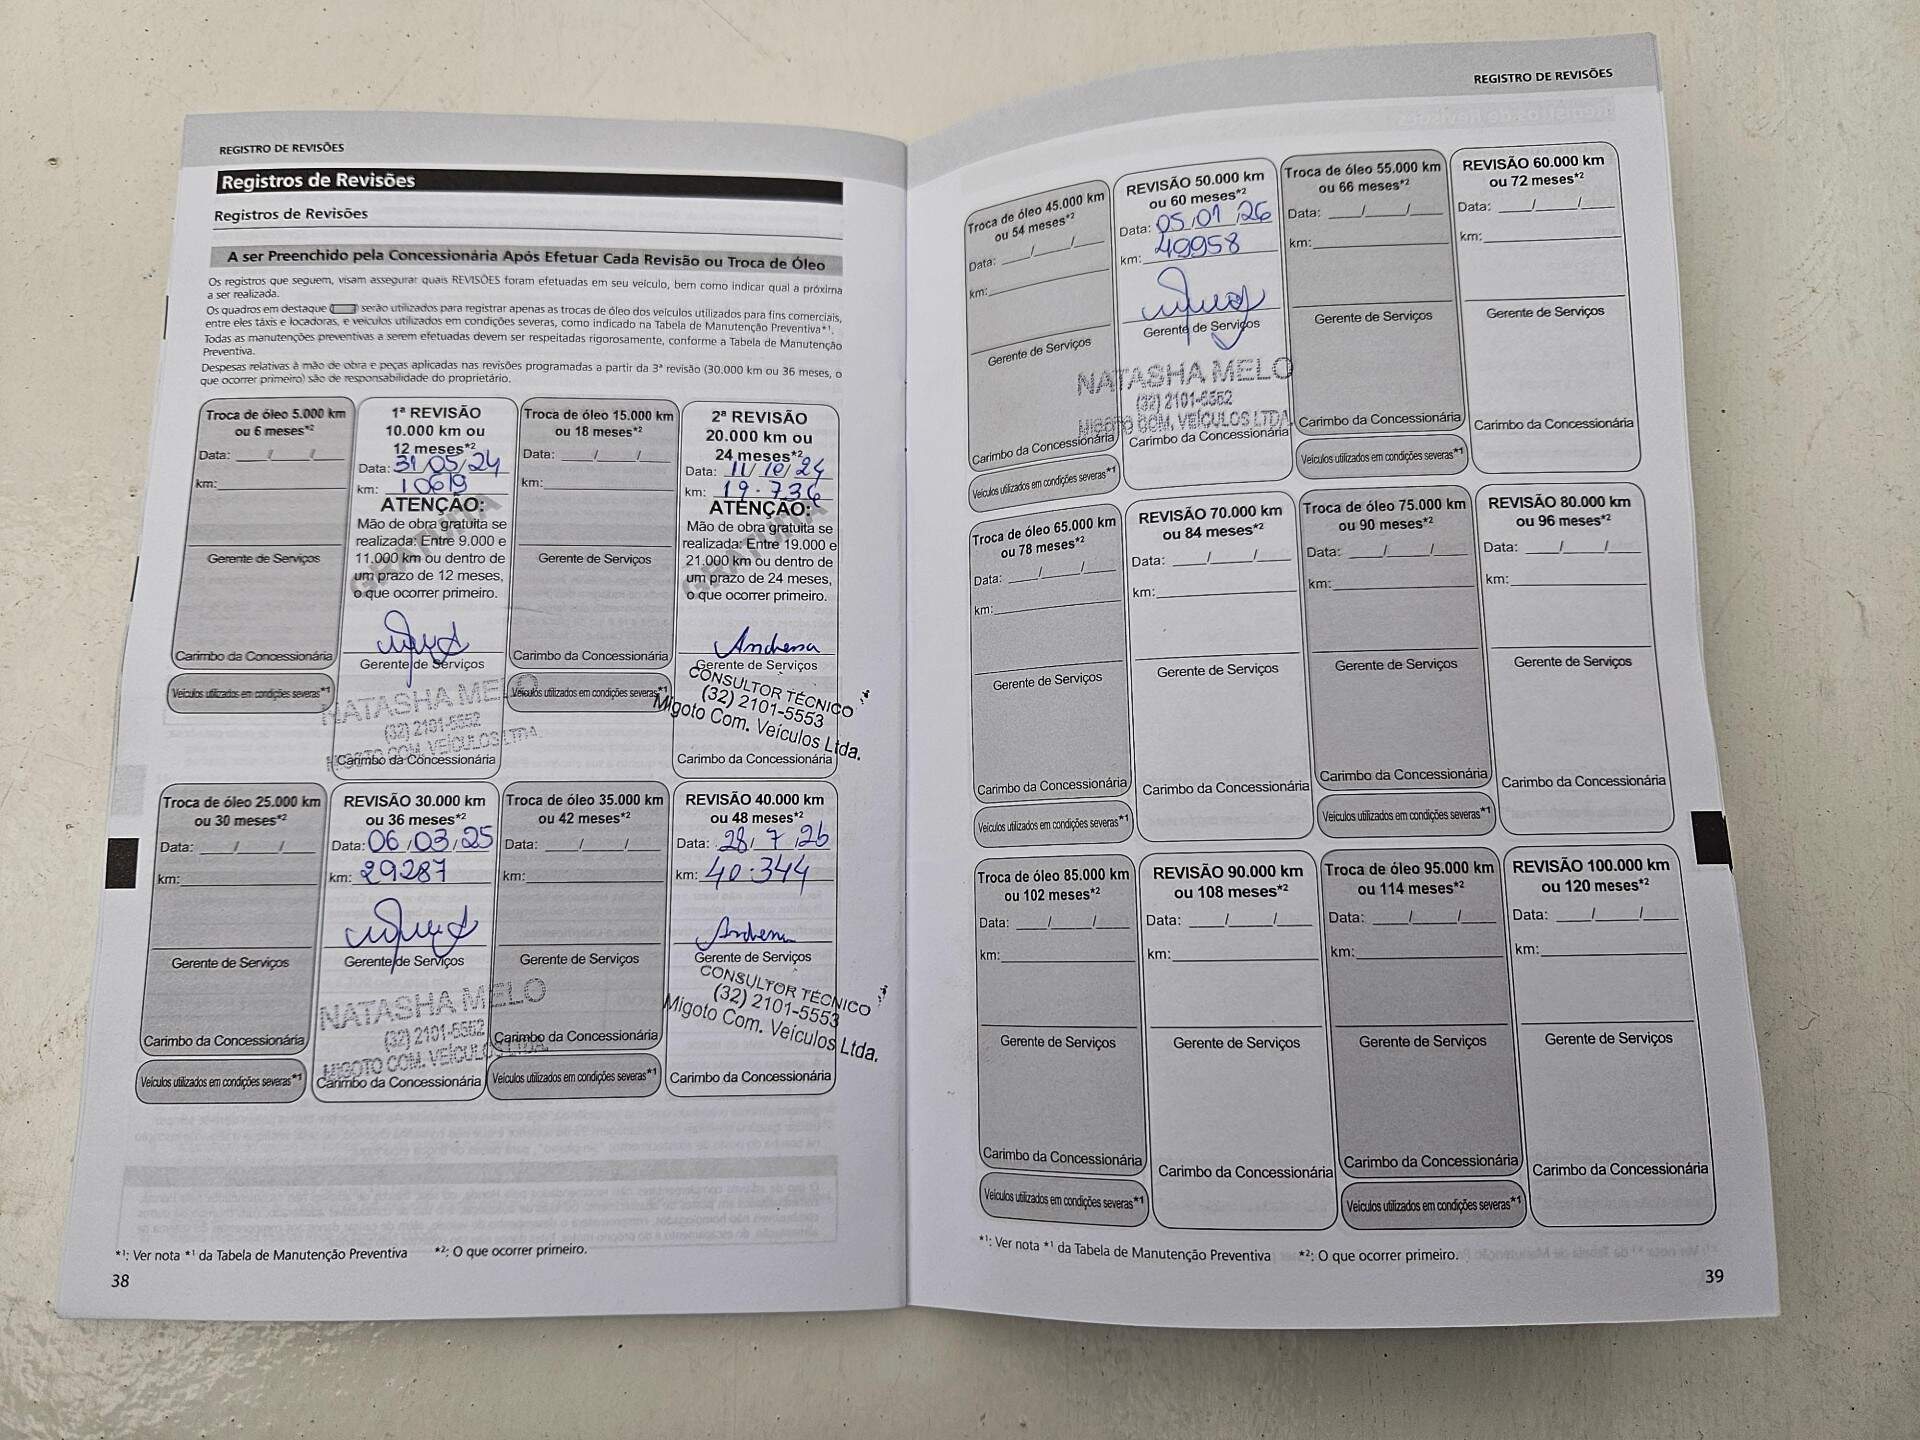 REGISTRO DE REVISÕES
Registros de Revisões
Registros de Revisões
A ser Preenchido pela Concessionária Após Efetuar Cada Revisão ou Troca de Óleo
Os registros que seguem, visam assegurar quais REVISÕES foram efetuadas em seu veículo, bem como indicar qual a próxima
a ser realizada.
Os quadros em destaque ( ) serão utilizados para registrar apenas as trocas de óleo dos veículos utilizados para fins comerciais,
entre eles táxis e locadoras, e veículos utilizados em condições severas, como indicado na Tabela de Manutenção Preventiva*¹.
Todas as manutenções preventivas a serem efetuadas devem ser respeitadas rigorosamente, conforme a Tabela de Manutenção
Preventiva.
Despesas relativas à mão de obra e peças aplicadas nas revisões programadas a partir da 3ª revisão (30.000 km ou 36 meses, o
que ocorrer primeiro) são de responsabilidade do proprietário.
Troca de óleo 5.000 km
ou 6 meses*²
Data: ___/___/___
km:
Gerente de Serviços
Carimbo da Concessionária
Veículos utilizados em condições severas*¹
1ª REVISÃO
10.000 km ou
12 meses*²
Data: 31/05/24
km: 10619
ATENÇÃO:
Mão de obra gratuita se
realizada: Entre 9.000 e
11.000 km ou dentro de
um prazo de 12 meses,
o que ocorrer primeiro.
GRATUITA
Gerente de Serviços
NATASHA MELO
(32) 2101-5552
MIGOTO COM. VEÍCULOS LTDA.
Carimbo da Concessionária
Troca de óleo 15.000 km
ou 18 meses*²
Data: ___/___/___
km:
Gerente de Serviços
Carimbo da Concessionária
Veículos utilizados em condições severas*¹
2ª REVISÃO
20.000 km ou
24 meses*²
Data: 11/10/24
km: 19.736
ATENÇÃO:
Mão de obra gratuita se
realizada: Entre 19.000 e
21.000 km ou dentro de
um prazo de 24 meses,
o que ocorrer primeiro.
GRATUITA
Andressa
Gerente de Serviços
CONSULTOR TÉCNICO
(32) 2101-5553
Migoto Com. Veículos Ltda.
Carimbo da Concessionária
Troca de óleo 25.000 km
ou 30 meses*²
Data: ___/___/___
km:
Gerente de Serviços
Carimbo da Concessionária
Veículos utilizados em condições severas*¹
REVISÃO 30.000 km
ou 36 meses*²
Data: 06/03/25
km: 29287
Gerente de Serviços
NATASHA MELO
(32) 2101-5552
MIGOTO COM. VEÍCULOS LTDA.
Carimbo da Concessionária
Troca de óleo 35.000 km
ou 42 meses*²
Data: ___/___/___
km:
Gerente de Serviços
Carimbo da Concessionária
Veículos utilizados em condições severas*¹
REVISÃO 40.000 km
ou 48 meses*²
Data: 28/7/26
km: 40.344
Andressa
Gerente de Serviços
CONSULTOR TÉCNICO
(32) 2101-5553
Migoto Com. Veículos Ltda.
Carimbo da Concessionária
*¹: Ver nota *¹ da Tabela de Manutenção Preventiva *²: O que ocorrer primeiro.
38
REGISTRO DE REVISÕES
Troca de óleo 45.000 km
ou 54 meses*²
Data: ___/___/___
km:
Gerente de Serviços
Carimbo da Concessionária
Veículos utilizados em condições severas*¹
REVISÃO 50.000 km
ou 60 meses*²
Data: 05/01/26
km: 49958
Gerente de Serviços
NATASHA MELO
(32) 2101-5552
MIGOTO COM. VEÍCULOS LTDA.
Carimbo da Concessionária
Troca de óleo 55.000 km
ou 66 meses*²
Data: ___/___/___
km:
Gerente de Serviços
Carimbo da Concessionária
Veículos utilizados em condições severas*¹
REVISÃO 60.000 km
ou 72 meses*²
Data: ___/___/___
km:
Gerente de Serviços
Carimbo da Concessionária
Troca de óleo 65.000 km
ou 78 meses*²
Data: ___/___/___
km:
Gerente de Serviços
Carimbo da Concessionária
Veículos utilizados em condições severas*¹
REVISÃO 70.000 km
ou 84 meses*²
Data: ___/___/___
km:
Gerente de Serviços
Carimbo da Concessionária
Troca de óleo 75.000 km
ou 90 meses*²
Data: ___/___/___
km:
Gerente de Serviços
Carimbo da Concessionária
Veículos utilizados em condições severas*¹
REVISÃO 80.000 km
ou 96 meses*²
Data: ___/___/___
km:
Gerente de Serviços
Carimbo da Concessionária
Troca de óleo 85.000 km
ou 102 meses*²
Data: ___/___/___
km:
Gerente de Serviços
Carimbo da Concessionária
Veículos utilizados em condições severas*¹
REVISÃO 90.000 km
ou 108 meses*²
Data: ___/___/___
km:
Gerente de Serviços
Carimbo da Concessionária
Troca de óleo 95.000 km
ou 114 meses*²
Data: ___/___/___
km:
Gerente de Serviços
Carimbo da Concessionária
Veículos utilizados em condições severas*¹
REVISÃO 100.000 km
ou 120 meses*²
Data: ___/___/___
km:
Gerente de Serviços
Carimbo da Concessionária
*¹: Ver nota *¹ da Tabela de Manutenção Preventiva *²: O que ocorrer primeiro.
39